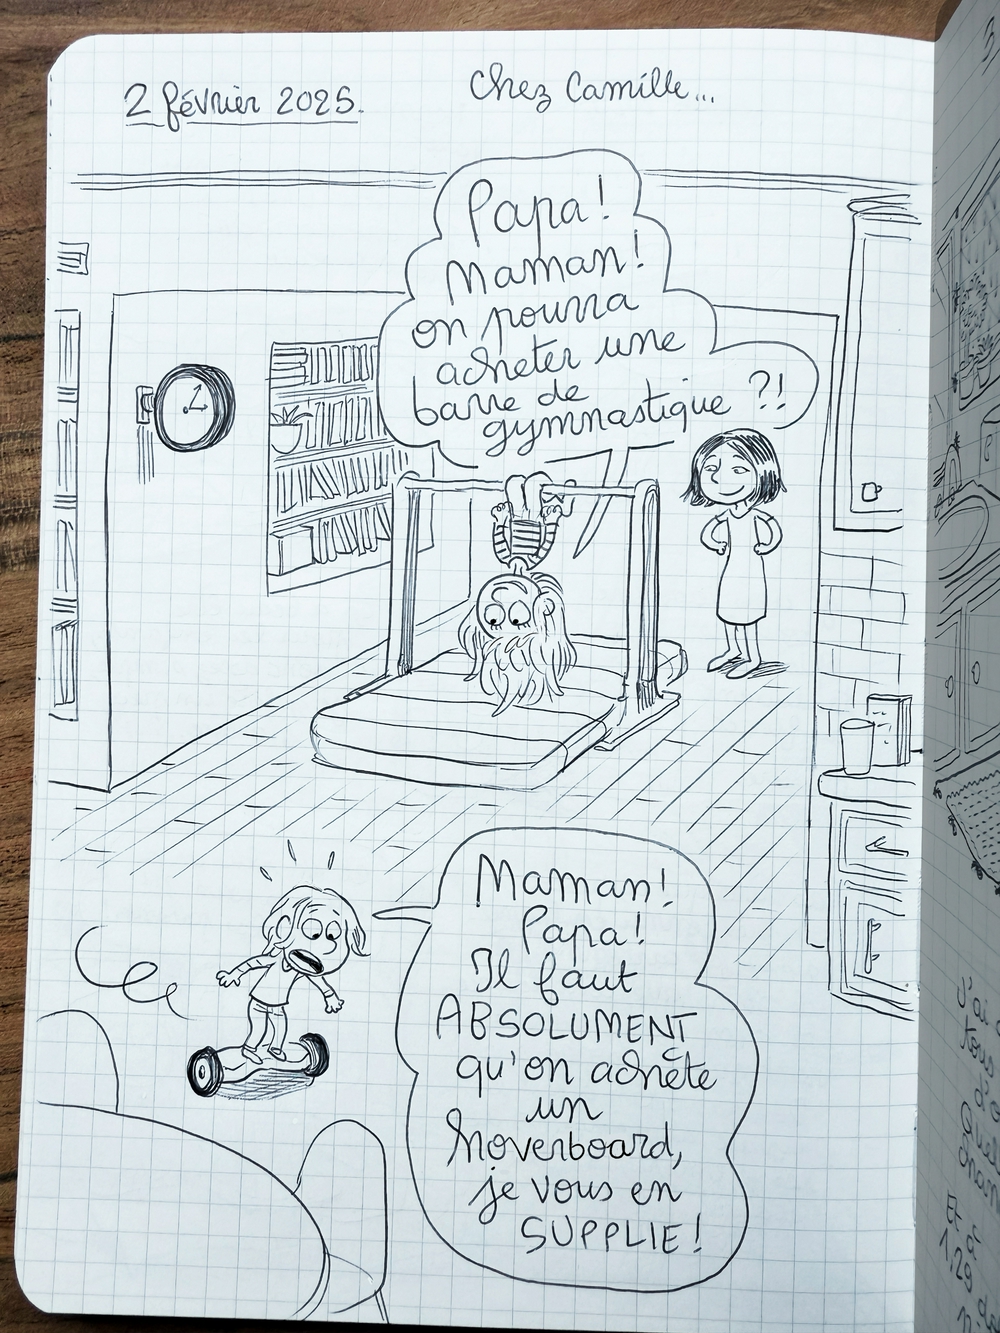 2 février 2025.
Chez Camille...
Papa!
Maman!
on pourra
acheter une
barre de
gymnastique ?!
Maman!
Papa!
Il faut
ABSOLUMENT
qu'on achète
un
hoverboard,
je vous en
SUPPLIE!
J'ai
Et à
1,29